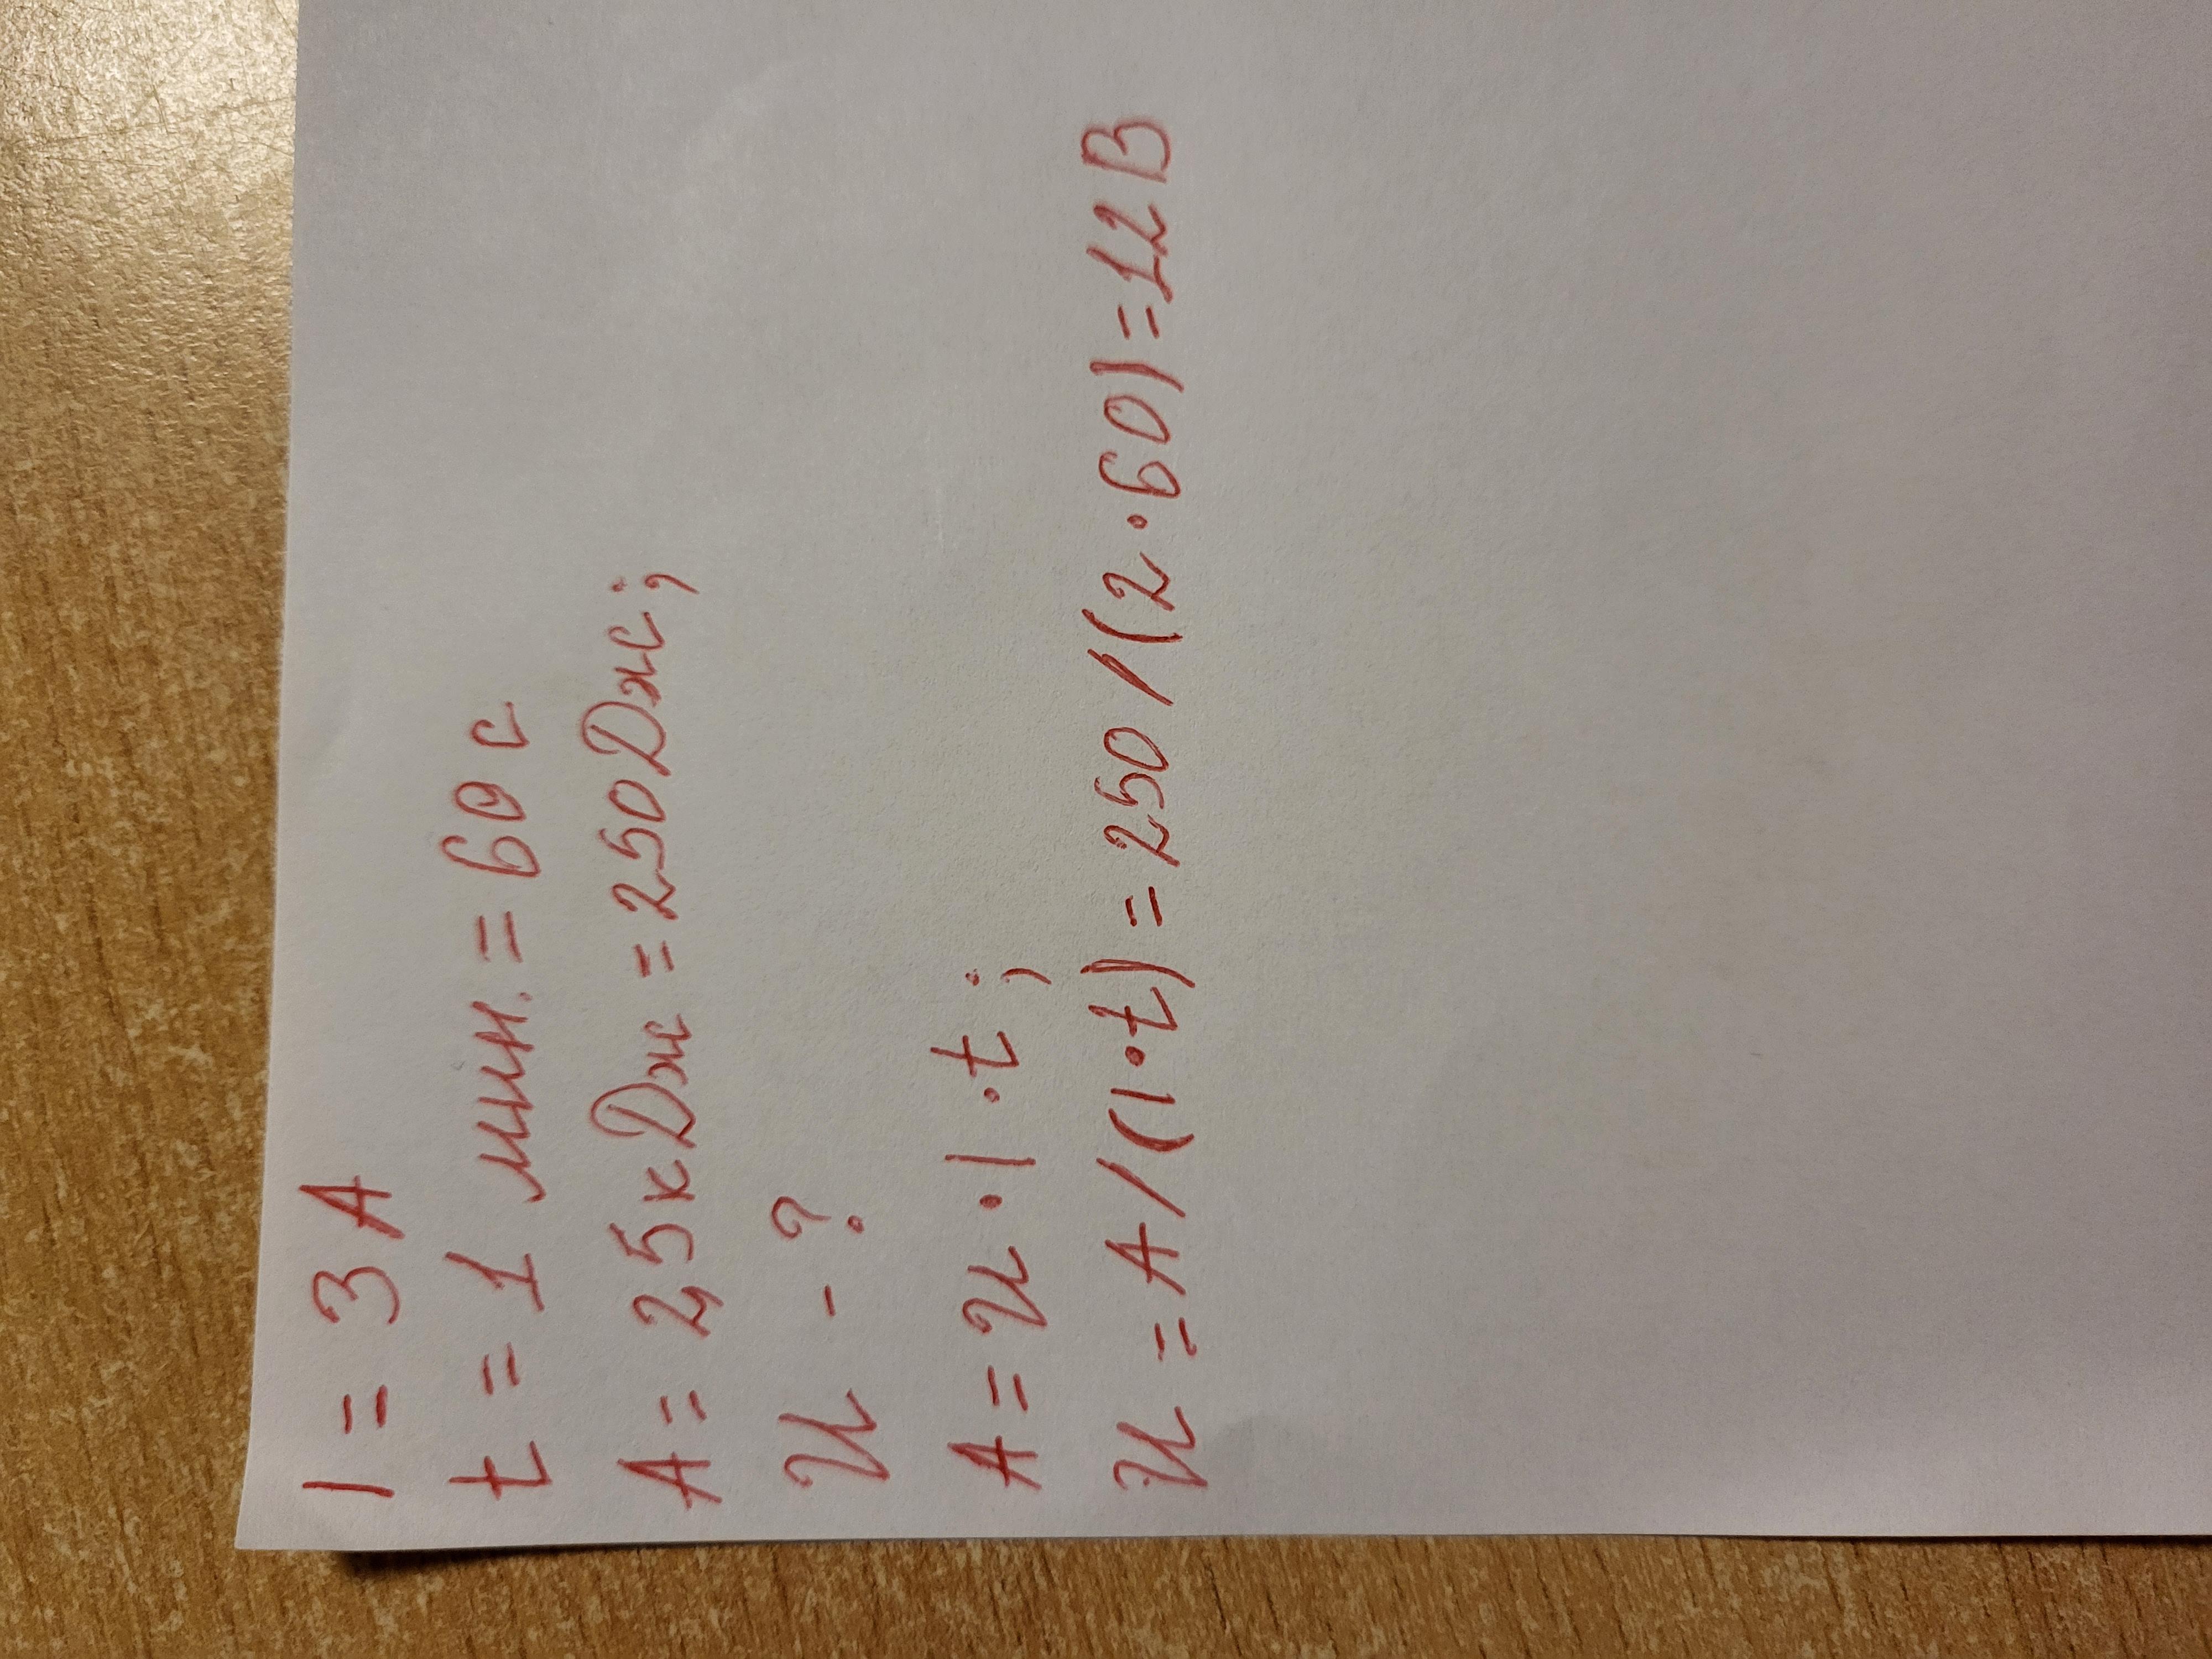 I = 3 А
t = 1 мин. = 60 с
А = 2,5кДж = 250Дж;
U - ?
А = U · I · t ;
U = А/(I·t) = 250/(2·60) = 12В